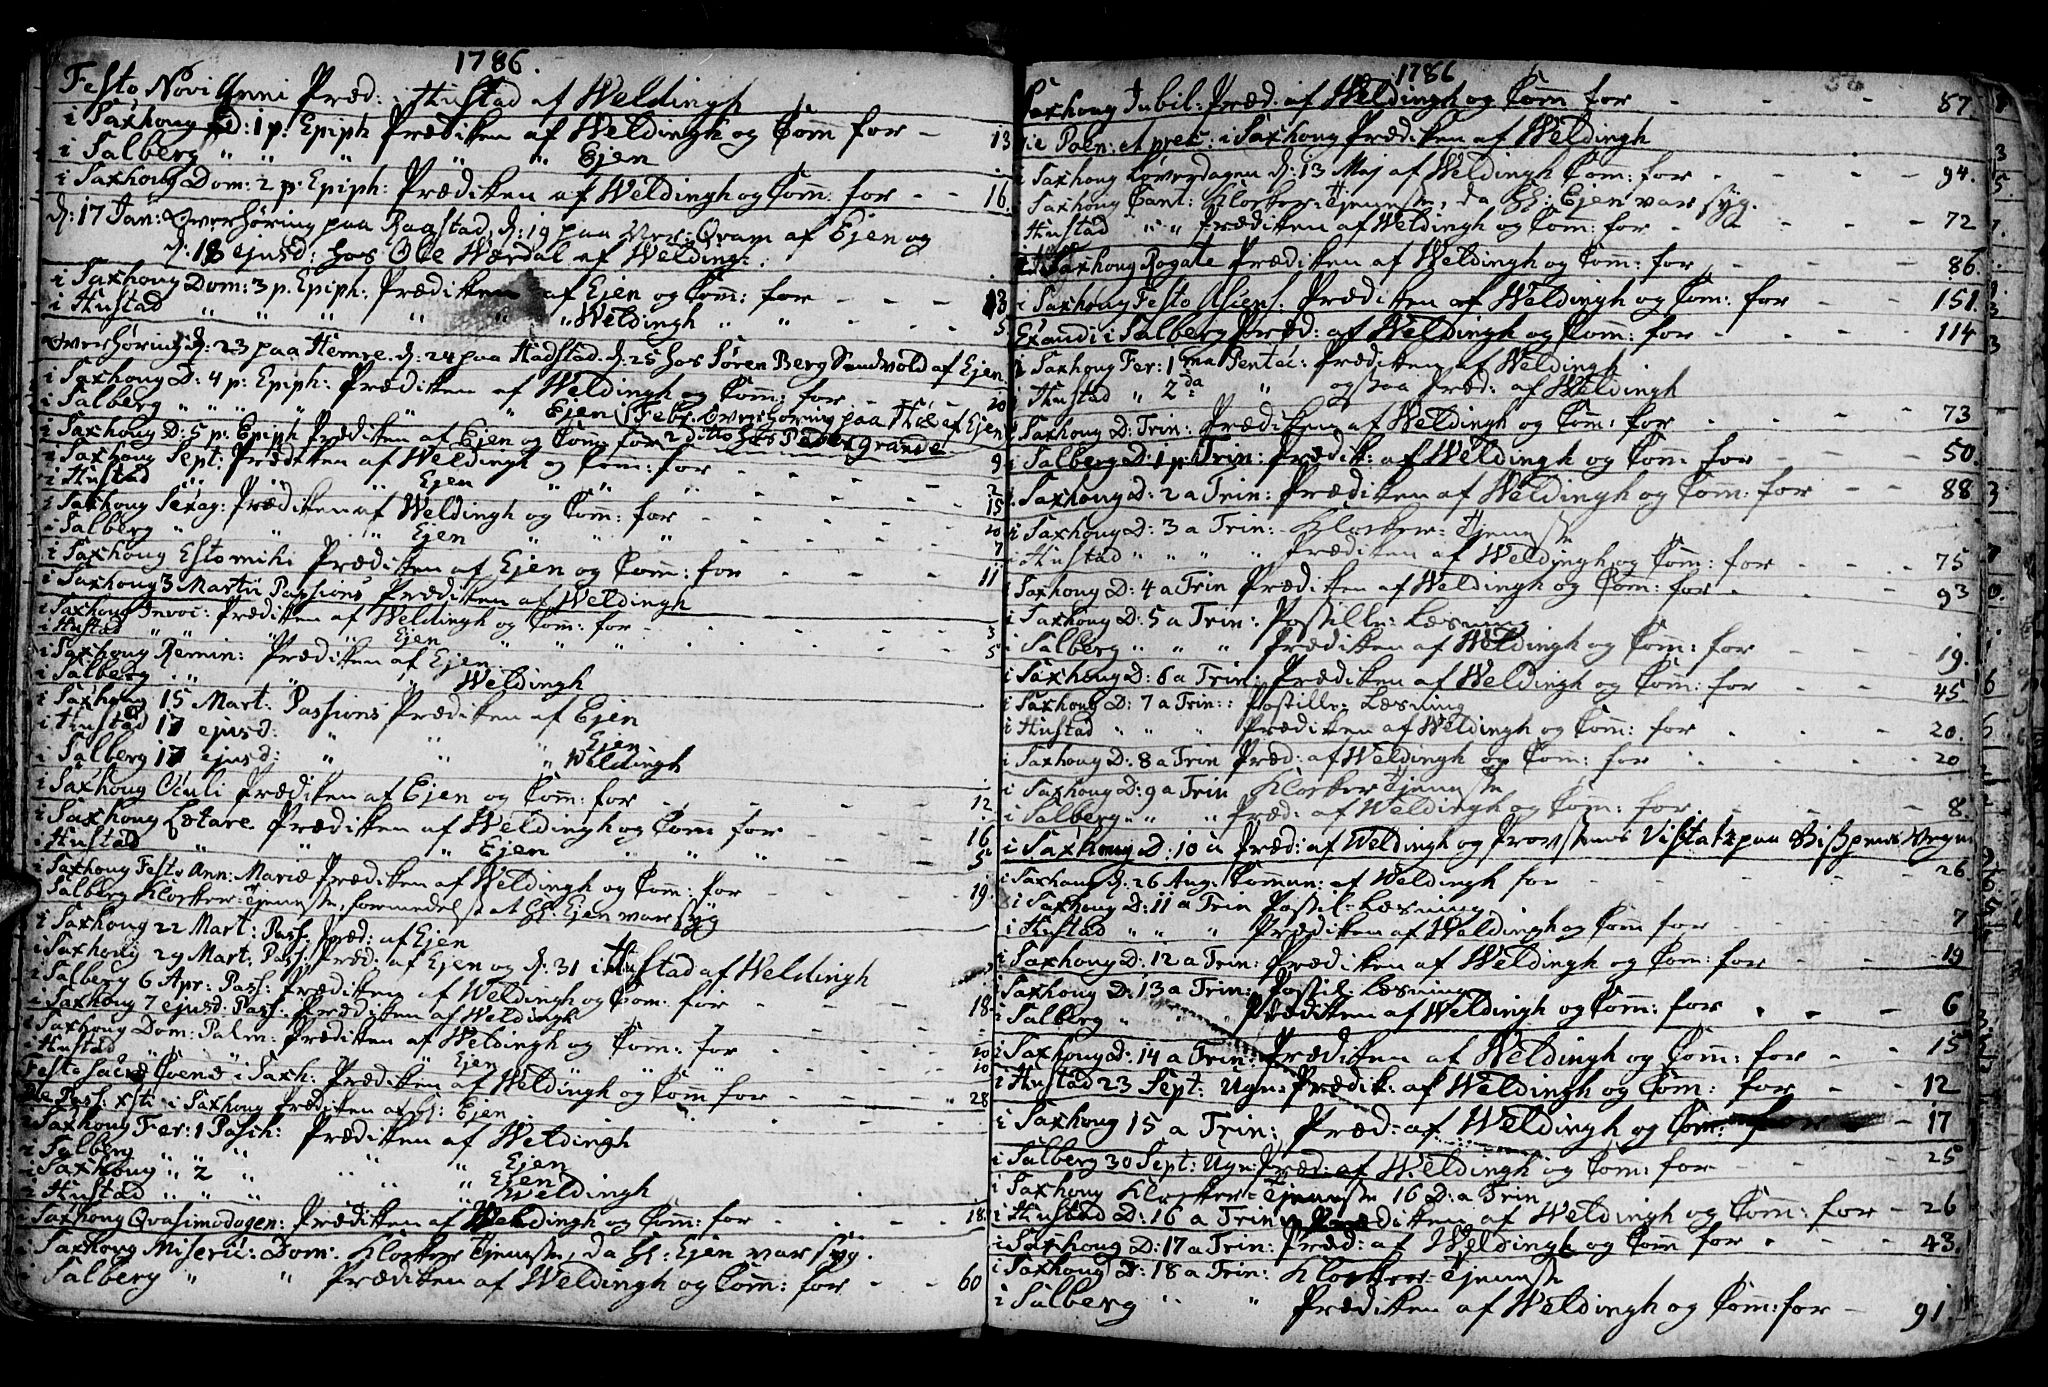 1786.
Festo Novi Anni Præd: i Hustad af Weldingh
i Saxhoug D: 1 p: Epiph Prædiken af Weldingh og Com̄ for - 13
i Salberg " " " " " Ejen
i Saxhoug Dom: 2 p: Epiph: Prædiken af Weldingh og Com̄: for - - 16.
D: 17 Jan: Overhøring paa Raastad, D: 19 paa Qvam af Ejen og
D: 18 ejusd: hos Ole Wærdal af Welding:.
i Saxhoug Dom: 3 p. Epiph: Prædiken af Ejen og Com̄: for - - - 13
i Hustad " " " " " " Weldingh " " - - - 5
Overhøring D: 23 paa Hemre. D: 24 paa Hadstad. D: 25 hos Søren Berg Sundvold af Ejen.
i Saxhoug D: 4 p: Epiph: Prædiken af Weldingh og Com̄: for - - - 20
i Salberg " " " " " Ejen (Febr. Overhøring paa af Ejen
i Saxhoug D: 5 p: Epiph Prædiken af Ejen og Com̄ for 2 dito hos Peder grande
i Saxhoug Sept: Prædiken af Weldingh og Com̄: for - - - 9
i Hustad " " " Ejen " " " - - - 2
i Saxhoug Sexag: Prædiken af Weldingh og Com̄: for - - - 15
i Salberg " " " Ejen " " " - - - 20
i Saxhoug Estomihi Prædiken af Ejen og Com̄: for - - - 7
i Saxhoug 3 Martii Passions Prædiken af Weldingh 11
i Saxhoug Invoc: Prædiken af Weldingh og Com̄: for - - - 3
i Hustad " " " Ejen " " " - - - 5
i Saxhoug Remin: Prædiken af Ejen
i Salberg " " " Weldingh
i Saxhoug 15 Mart: Passions Prædiken af Ejen
i Hustad 17 ejusd: " " " Ejen
i Salberg 17 ejusd: " " " Weldingh
i Saxhoug Oculi Prædiken af Ejen og Com̄: for - - - 12
i Saxhoug Lætare Prædiken af Weldingh og Com̄ for - - - 16
i Hustad " " " Ejen " " " - - 5
i Saxhoug Festo Ann: Mariæ Prædiken af Weldingh og Com̄: for - - - 19
Salberg Klocker-Tjeneste, formedelst at Hr: Ejen var syg
i Saxhoug 22 Mart: Pass: Præd: af Ejen
i Saxhoug 29 Mart: Pass: Præd: af Ejen og D: 31 i Hustad af Weldingh
i Salberg 6 Apr: Pass: Prædiken af Weldingh og Com̄: for - - - 18
i Saxhoug 7 ejusd: Pass: Prædiken af Weldingh
i Saxhoug Dom: Palm: Prædiken af Weldingh og Com̄: for - - - 10
i Hustad " " " Ejen " " " - - 10
Festo Sacræ Coenæ i Saxh: Prædiken af Weldingh og Com̄ for - - - 28
Die Pass: xsti i Saxhoug Prædiken af Hr: Ejen
i Saxhoug Fer: 1 Pasch: Prædiken af Weldingh
i Salberg " " " " Ejen
i Saxhoug " 2 " " " Ejen
i Hustad " " " " Weldingh
i Saxhoug Qvasimodogen: Prædiken af Weldingh og Com̄: for - - - 18
i Saxhoug Miseric: Dom: Klocker Tjeneste, da Hr: Ejen var syg.
i Salberg " " Prædiken af Weldingh og Com̄: for - - 60
1786
Saxhoug Jubil: Præd: af Weldingh og Com̄ for - - - 87.
Die Poen: et prec: i Saxhoug Prædiken af Weldingh
i Saxhoug Løverdagen D: 13 Maj af Weldingh Com̄: for - - - 94.
Saxhoug Cant: Klocker-Tjeneste, da Hr: Ejen var syg.
Hustad " " Prædiken af Weldingh og Com̄: for - - - 72
i Saxhoug Rogate Prædiken af Weldingh og Com̄: for - - - 86.
i Saxhoug Festo Ascens: Prædiken af Weldingh og Com̄: for - - 151.
Exaudi i Salberg Præd: af Weldingh og Com̄: for - - - 114
i Saxhoug Fer: 1ma Pentec: Prædiken af Weldingh
i Hustad " 2da " ogsaa Præd: af Weldingh
i Saxhoug D: Trin: Prædiken af Weldingh og Com̄: for - - - 73
i Salberg D: 1 p: Trin: Prædik: af Weldingh og Com̄: for - - - 50.
i Saxhoug D: 2 a Trin: Prædiken af Weldingh og Com̄: for - - 88
i Saxhoug D: 3 a Trin: Klocker-Tjeneste
i Hustad " " " " Prædiken af Weldingh og Com̄: for - - - 75
i Saxhoug D: 4 a Trin Prædiken af Weldingh og Com̄: for - - - 93
i Saxhoug D: 5 a Trin: Postille-Læsning
i Salberg " " " " Prædiken af Weldingh og Com̄: for - - - 19.
i Saxhoug D: 6 a Trin: Prædiken af Weldingh og Com̄: for - - - 45.
i Saxhoug D: 7 a Trin:: Postille-Læsning
i Hustad " " " Prædiken af Weldingh og Com̄: for - - - 20.
i Saxhoug D: 8 a Trin Præd: af Weldingh og Com̄: for - - - 20
i Saxhoug D: 9 a Trin Klocker Tjeneste
i Salberg " " " Præd: af Weldingh og Com̄: for - - - 8.
i Saxhoug D: 10 a Præd: af Weldingh og Provstens Visitatz paa Bispens Vegne
i Saxhoug D: 26 Aug: Com̄un: af Weldingh for - - - 26
i Saxhoug D: 11 a Trin Postil-Læsning
i Hustad " " " Prædiken af Weldingh og Com̄ for - - - 7
i Saxhoug D: 12 a Trin: Prædiken af Weldingh og Com̄: for - - - 19
i Saxhoug D: 13 a Trin: Postil-Læsning
i Salberg " " " Prædiken af Weldingh og Com̄: for - - - 6
i Saxhoug D: 14 a Trin: Prædiken af Weldingh og Com̄: for - - 15
i Hustad 23 Sept: Ugn: Prædik: af Weldingh og Com̄: for - - 12
i Saxhoug 15 a Trin: Præd: af Weldingh og Com̄: for - 17
i Salberg 30 Sept: Ugn: Præd: af Weldingh og Com̄: for - - - 25
i Saxhoug Klocker-Tjeneste 16 D: a Trin
i Hustad D: 16 a Trin Prædiken af Weldingh og Com̄: for - 26
i Saxhoug D: 17 a Trin: Præd: af Weldingh og Com̄ for - - - 43.
i Saxhoug D: 18 a Trin: Klocker-Tjeneste
i Salberg " " Prædiken af Weldingh og Com̄: for - 91.